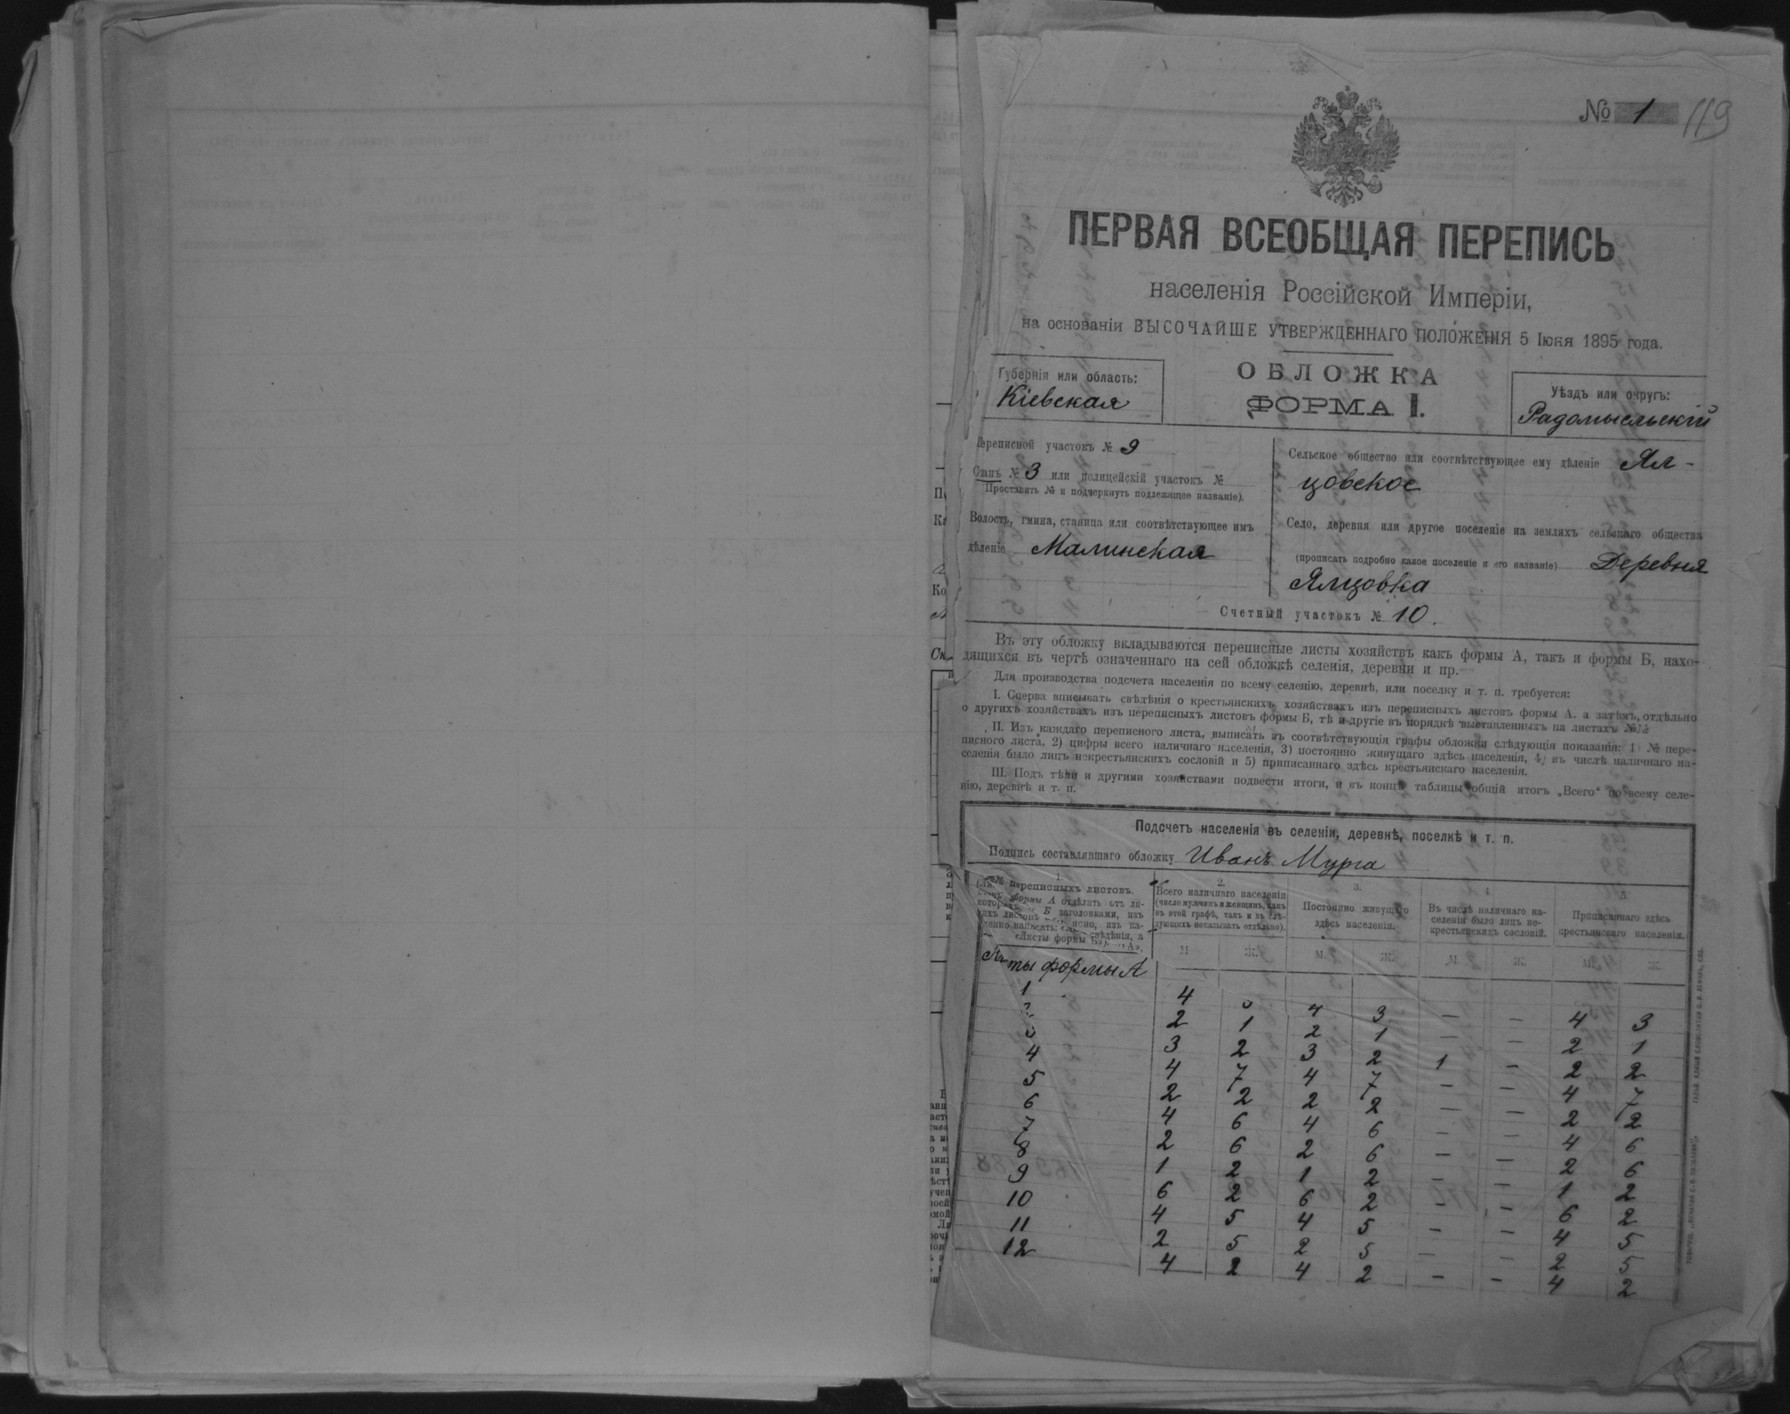 № 1 119
ПЕРВАЯ ВСЕОБЩАЯ ПЕРЕПИСЬ
населенія Россійской Имперіи,
на основаніи ВЫСОЧАЙШЕ УТВЕРЖДЕННАГО ПОЛОЖЕНІЯ 5 Іюня 1895 года.
ОБЛОЖКА
ФОРМА I.
Губернія или область:
Кіевская
Уѣздъ или округъ:
Радомысльскій
Переписной участокъ № 9
Станъ № 3 или полицейскій участокъ №
Проставить № и подчеркнуть подлежащее названіе).
Волость, гмина, станица или соотвѣтствующее имъ
дѣленіе Малинская
Сельское общество или соотвѣтствующее ему дѣленіе Ял-
цовское
Село, деревня или другое поселеніе на земляхъ сельскаго общества
(прописать подробно какое поселеніе и его названіе) Деревня
Ялцовка
Счетный участокъ № 10.
Въ эту обложку вкладываются переписные листы хозяйствъ какъ формы А, такъ и формы Б, нахо-
дящихся въ чертѣ означеннаго на сей обложкѣ селенія, деревни и пр.
Для производства подсчета населенія по всему селенію, деревнѣ, или поселку и т. п. требуется:
I. Сперва вписывать свѣдѣнія о крестьянскихъ хозяйствахъ изъ переписныхъ листовъ формы А. а затѣмъ, отдѣльно
о другихъ хозяйствахъ изъ переписныхъ листовъ формы Б, тѣ и другіе въ порядкѣ выставленныхъ на листахъ №№
II. Изъ каждаго переписного листа, выписать въ соотвѣтствующія графы обложки слѣдующія показанія: 1) № пере-
писного листа, 2) цифры всего наличнаго населенія, 3) постоянно живущаго здѣсь населенія, 4) въ числѣ наличнаго на-
селенія было лицъ некрестьянскихъ сословій и 5) приписаннаго здѣсь крестьянскаго населенія.
III. Подъ тѣми и другими хозяйствами подвести итоги, и въ концѣ таблицы общій итогъ „Всего“ по всему селе-
нію, деревнѣ и т. п.
Подсчетъ населенія въ селеніи, деревнѣ, поселкѣ и т. п.
Подпись составлявшаго обложку Иванъ Мурга
переписныхъ листовъ.
2.
Всего наличнаго населенія
(число мужчинъ и женщинъ, какъ
въ этой графѣ, такъ и въ слѣ-
дующихъ показывать отдѣльно).
3.
Постоянно живущаго
здѣсь населенія.
4
Въ числѣ наличнаго на-
селенія было лицъ не-
крестьянскихъ сословій.
Приписаннаго здѣсь
крестьянскаго населенія.
М Ж. М. Ж. М Ж. М. Ж
ты формы А
1 4 3 4 3 — — 4 3
2 2 1 2 1 — — 2 1
3 3 2 3 2 1 — 2 2
4 4 7 4 7 — — 4 7
5 2 2 2 2 — — 2 2
6 4 6 4 6 — — 4 6
7 2 6 2 6 — — 2 6
8 1 2 1 2 — — 1 2
9 6 2 6 2 — — 6 2
10 4 5 4 5 — — 4 5
11 2 5 2 5 — — 2 5
12 4 2 4 2 — — 4 2